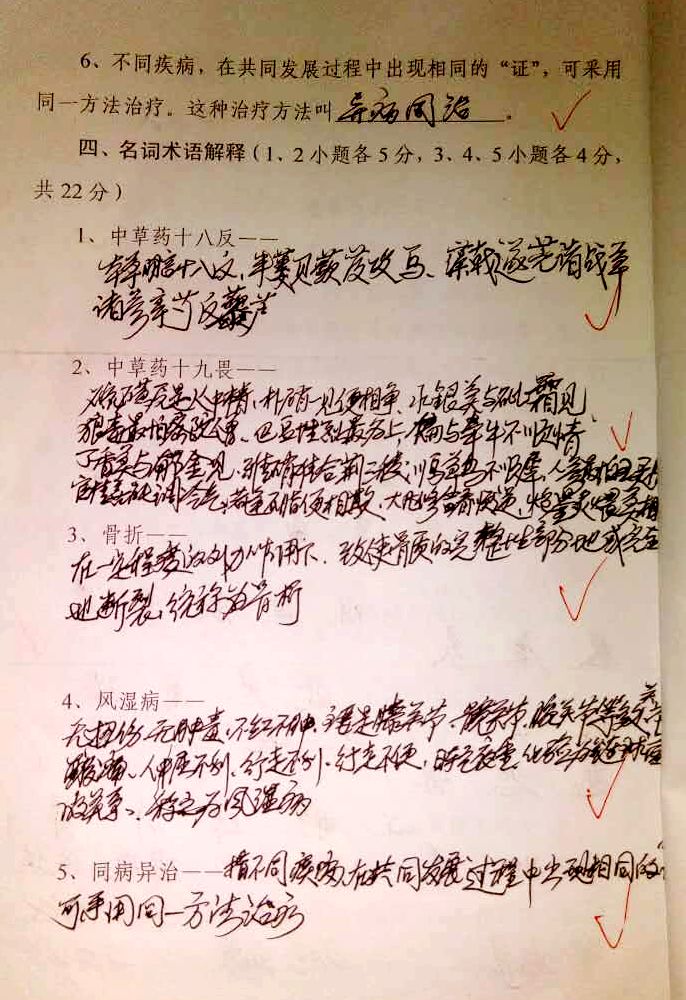 6、不同疾病，在共同发展过程中出现相同的“证”，可采用
同一方法治疗。这种治疗方法叫 异病同治 。
四、名词术语解释（1、2小题各5分，3、4、5小题各4分，
共22分）
1、中草药十八反——
本草明言十八反，半蒌贝蔹芨攻乌、藻戟遂芫俱战草
诸参辛芍反藜芦
2、中草药十九畏——
硫磺原是火中精，朴硝一见便相争、水银莫与砒霜见
狼毒最怕密陀僧、巴豆性烈最为上，偏与牵牛不顺情
丁香莫与郁金见，牙硝难合荆三棱，川乌草乌不顺犀，人参最怕五灵
官桂 石脂便相欺，大
3、骨折——
在一定程度的外力作用下、致使骨质的完整性部分地或完全
地断裂，统称为骨折
4、风湿病——
无扭伤、无肿毒、不红不肿、主要是膝关节、髋关节、腕关节等
酸痛、伸屈不利、行走不利、行走不便，时轻
的关系、称之为风湿病
5、同病异治——指不同疾病，在共同发展过程中出现相同的
可采用同一方法治疗